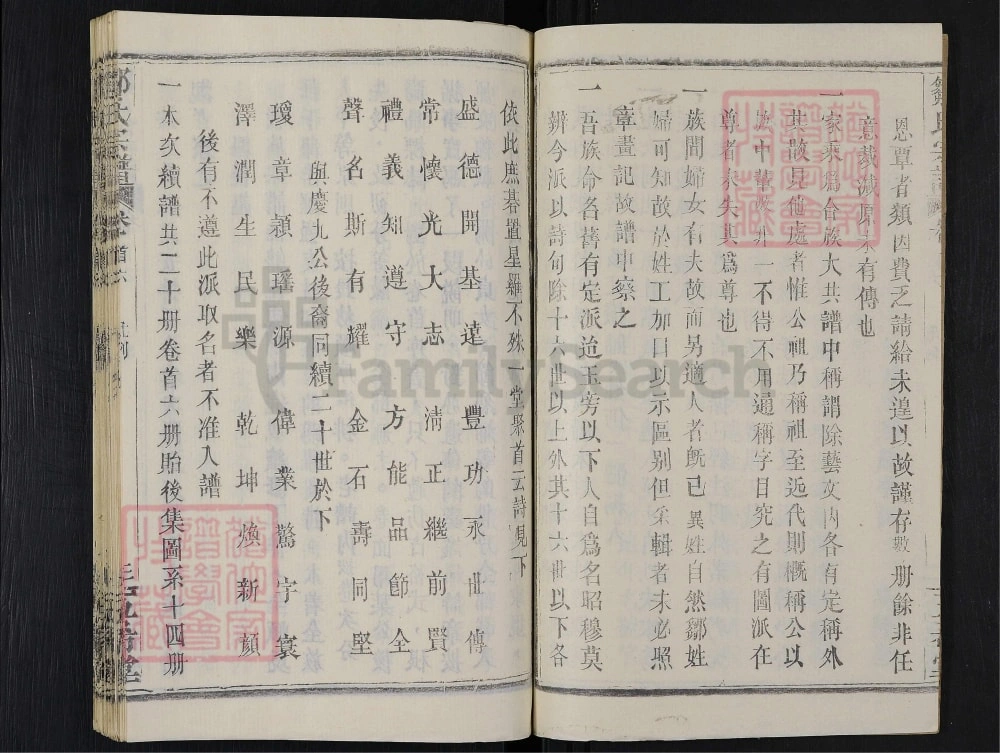 恩覃者類因費乏請給未遑以故謹存數册餘非任
意裁減原未有傳也
一家乘爲合族大共譜中稱謂除藝文內各有定稱外
其散見他處者惟公祖乃稱祖至近代則概稱公以
譜中輩次非一不得不用通稱字目究之有圖派在
尊者未失其爲尊也
一族間婦女有夫故而另適人者既已異姓自然鄒姓
婦可知故於姓工加口以示區别但采輯者未必照
章畫記故譜中缺之
一吾族命名舊有定派迨玉旁以下人自爲名昭穆莫
辨今派以詩句除十六世以上外其十六世以下各
依此庶碁置星羅不殊一堂聚首云詩見下
盛德開基遠豐功永世傳
常懷光大志清正繼前賢
禮義知遵守方能品節全
聲名斯有耀金石壽同堅
與慶九公後裔同續二十世於下
瓊章穎瑤源偉業驚宇寰
澤潤生民樂乾坤煥新顔
後有不遵此派取名者不准入譜
一本次續譜共二十册卷首六册貽後集圖系十四册
鄒氏宗譜 卷首六
FamilySearch